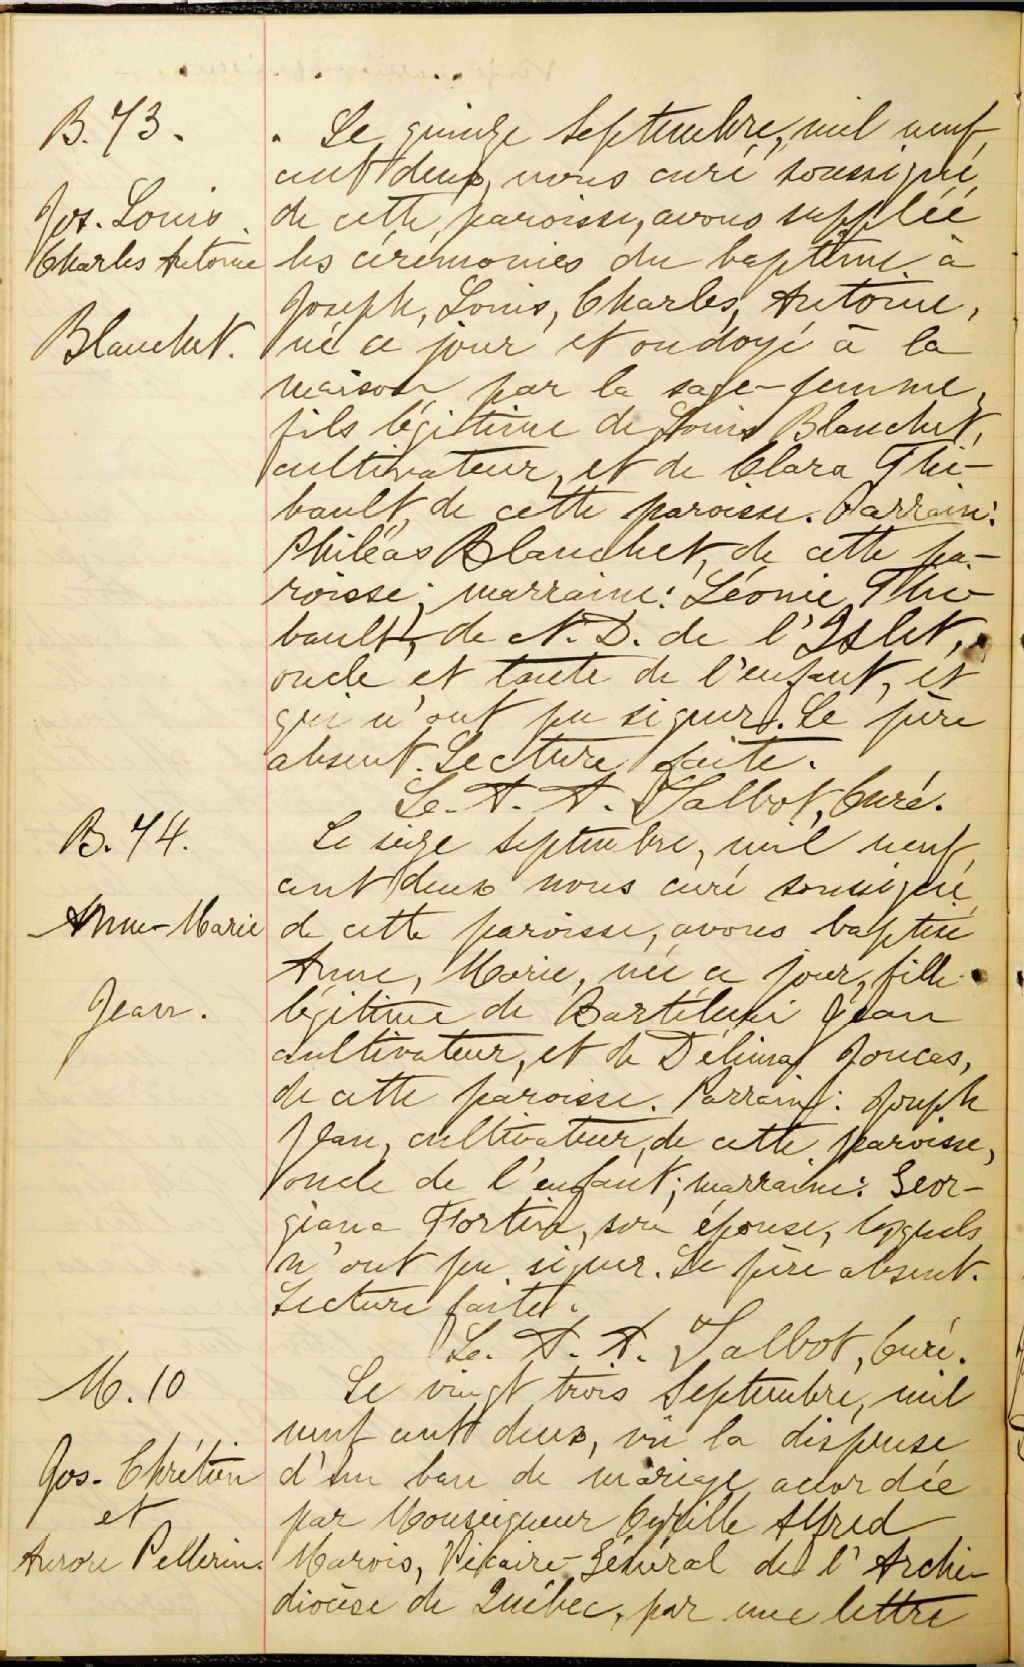 B. 73.
Jos. Louis
Charles Antoine
Blanchet.
Le quinze Septembre, mil neuf
cent deux, nous curé soussigné
de cette paroisse, avons supplée
les cérémonies du baptême à
Joseph, Louis, Charles, Antoine,
né ce jour et ondoyé à la
maison par la sage-femme,
fils légitime de Louis Blanchet,
cultivateur, et de Clara Thi-
bault, de cette paroisse. Parrain:
Philéas Blanchet, de cette pa-
roisse; marraine: Léonie Thi-
bault, de N. D. de l'Islet,
oncle et tante de l'enfant, et
qui n'ont pu signer. Le père
absent. Lecture faite.
Ls. A. A. Talbot, Curé.
B. 74.
Anne-Marie
Jean.
Le seize septembre, mil neuf
cent deux nous curé soussigné
de cette paroisse, avons baptisé
Anne, Marie, née ce jour, fille
légitime de Bartélemi Jean
cultivateur, et de Délima Joncas,
de cette paroisse. Parrain: Joseph
Jean, cultivateur, de cette paroisse,
oncle de l'enfant; marraine: Geor-
giana Fortin, son épouse, lesquels
n'ont pu signer. Le père absent.
Lecture faite.
Ls. A. A. Talbot, Curé.
M. 10
Jos. Chrétien
et
Aurore Pellerin.
Le vingt trois Septembre, mil
neuf cent deux, vu la dispense
d'un ban de mariage accordée
par Monseigneur Cyrille Alfred
Marois, Vicaire-Général de l'Archi-
diocèse de Québec, par une lettre